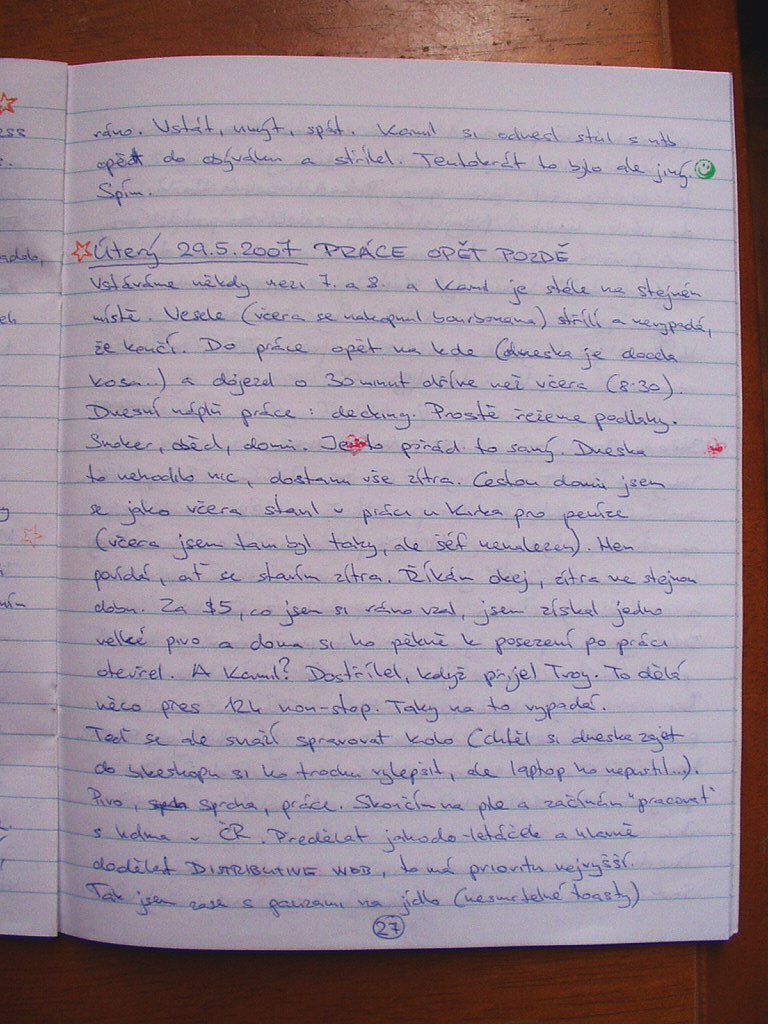 ess
adalo,
ráno. Vstát, umýt, spát. Kamil si odnesl stůl s ntb
opět do obýváku a střílel. Tentokrát to bylo ale jiný.
Spím.
Úterý 29.5.2007 PRÁCE OPĚT POZDĚ
Vstáváme někdy mezi 7. a 8. a Kamil je stále na stejném
místě. Vesele (včera se nakopnul bourbonama) střílí a nevypadá,
že končí. Do práce opět na kole (dneska je docela
kosa...) a dojezd o 30 minut dříve než včera (8:30).
Dnesní náplň práce: decking. Prostě řežeme podlahy.
Smoker, oběd, domů. Je to pořád to samý. Dneska
to nehodilo nic, dostanu vše zítra. Cestou domů jsem
se jako včera stavil v práci u Kirka pro peníze
(včera jsem tam byl taky, ale šéf nenalezen). Men
povídá, ať se stavím zítra. Říkám okej, zítra ve stejnou
dobu. Za $5, co jsem si ráno vzal, jsem získal jedno
velké pivo a doma si ho pěkně k posezení po práci
otevřel. A Kamil? Dostřílel, když přijel Troy. To dělá
něco přes 12h non-stop. Taky na to vypadá.
Teď se ale snaží spravovat kolo (chtěl si dneska zajet
do bikeshopu si ho trochu vylepšit, ale laptop ho nepustil...).
Pivo, sprcha, práce. Skončím na ple a začínám "pracovat"
s kdma v ČR. Předělat jahodo-letáčde a hlavně
dodělat DISTRIBUTIVE WEB, to má prioritu nejvyšší.
Tak jsem zase s pauzami na jídlo (nesmrtelné toasty)
27